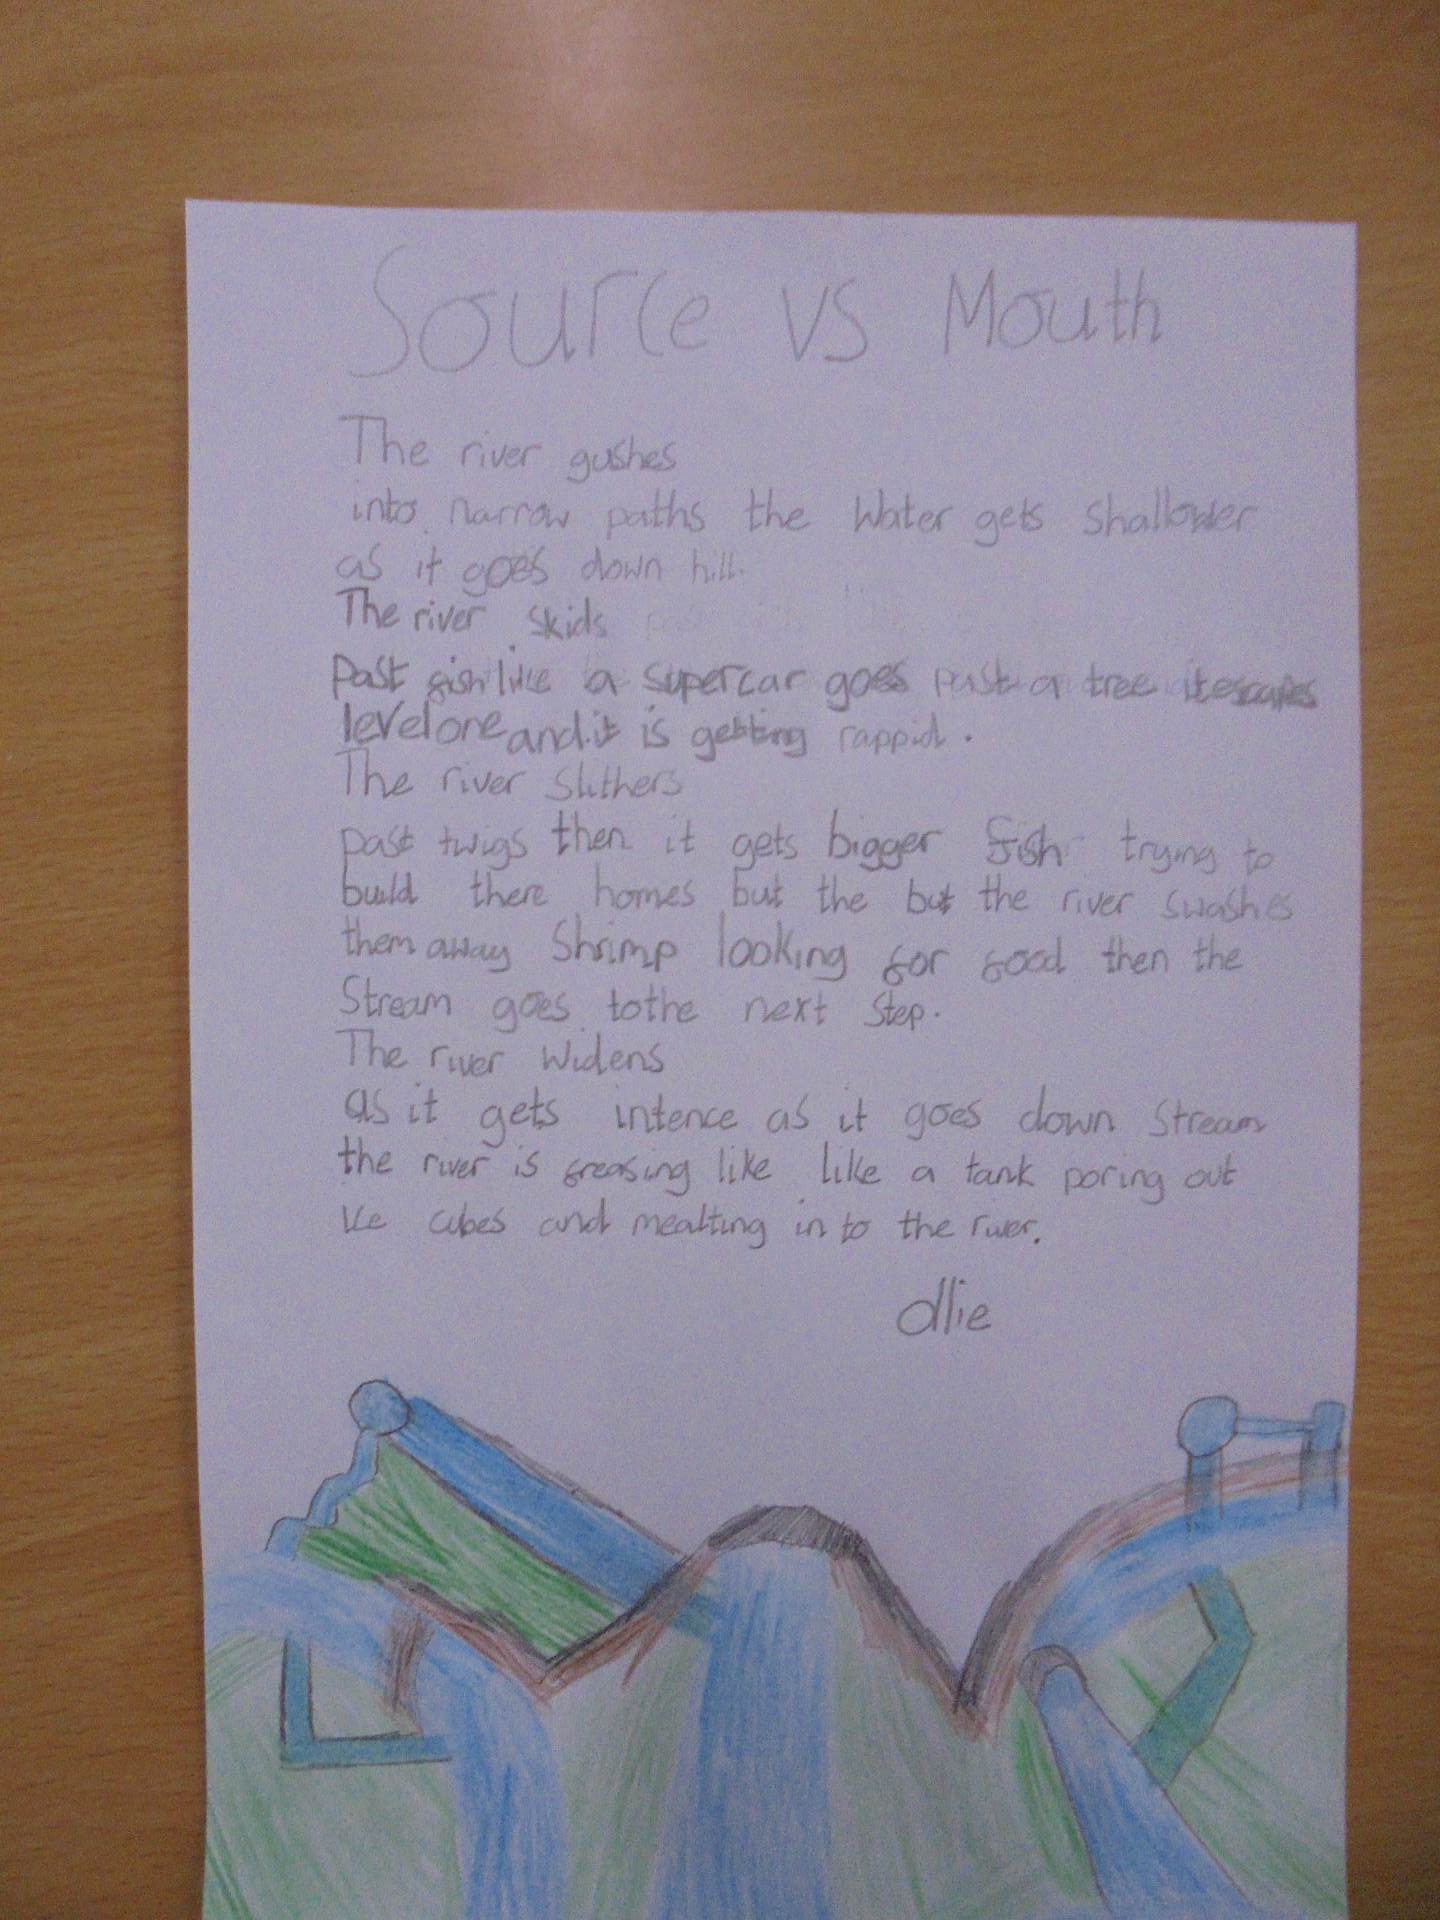 Source vs Mouth
The river gushes
into narrow paths the water gets shallower
as it goes down hill.
The river skids
past fish like a supercar goes past a tree it escapes
level one and it is getting rappid.
The river slithers
past twigs then it gets bigger fish trying to
build there homes but the but the river swashes
them away Shrimp looking for food then the
Stream goes to the next step.
The river widens
as it gets intence as it goes down stream
the river is freasing like like a tank poring out
ice cubes and mealting in to the river.
Ollie